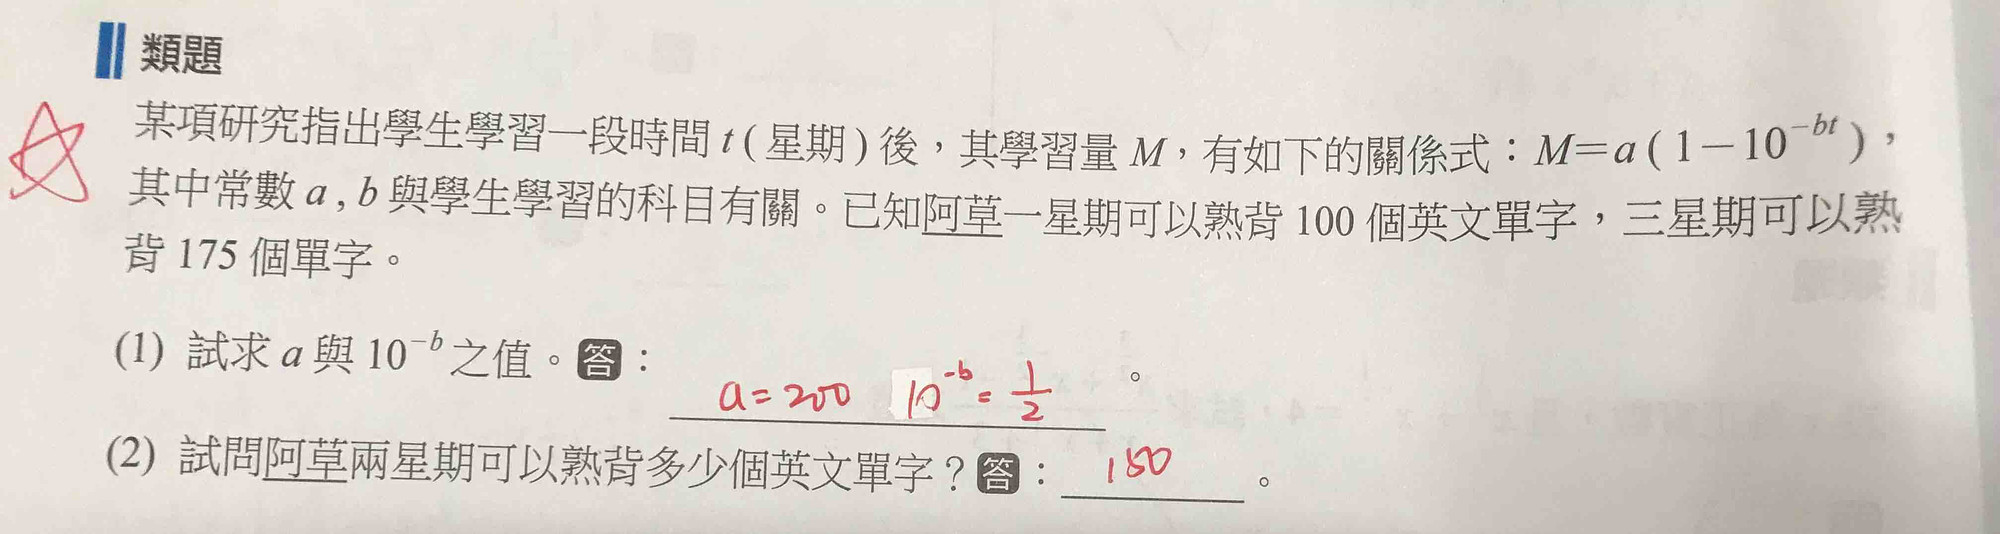 類題
某項研究指出學生學習一段時間 t ( 星期 ) 後，其學習量 M，有如下的關係式：M=a ( 1－10^{-bt} )，
其中常數 a , b 與學生學習的科目有關。已知阿草一星期可以熟背 100 個英文單字，三星期可以熟
背 175 個單字。
(1) 試求 a 與 10^{-b} 之值。答： a=200 10^{-b}=1/2 。
(2) 試問阿草兩星期可以熟背多少個英文單字？答： 150 。